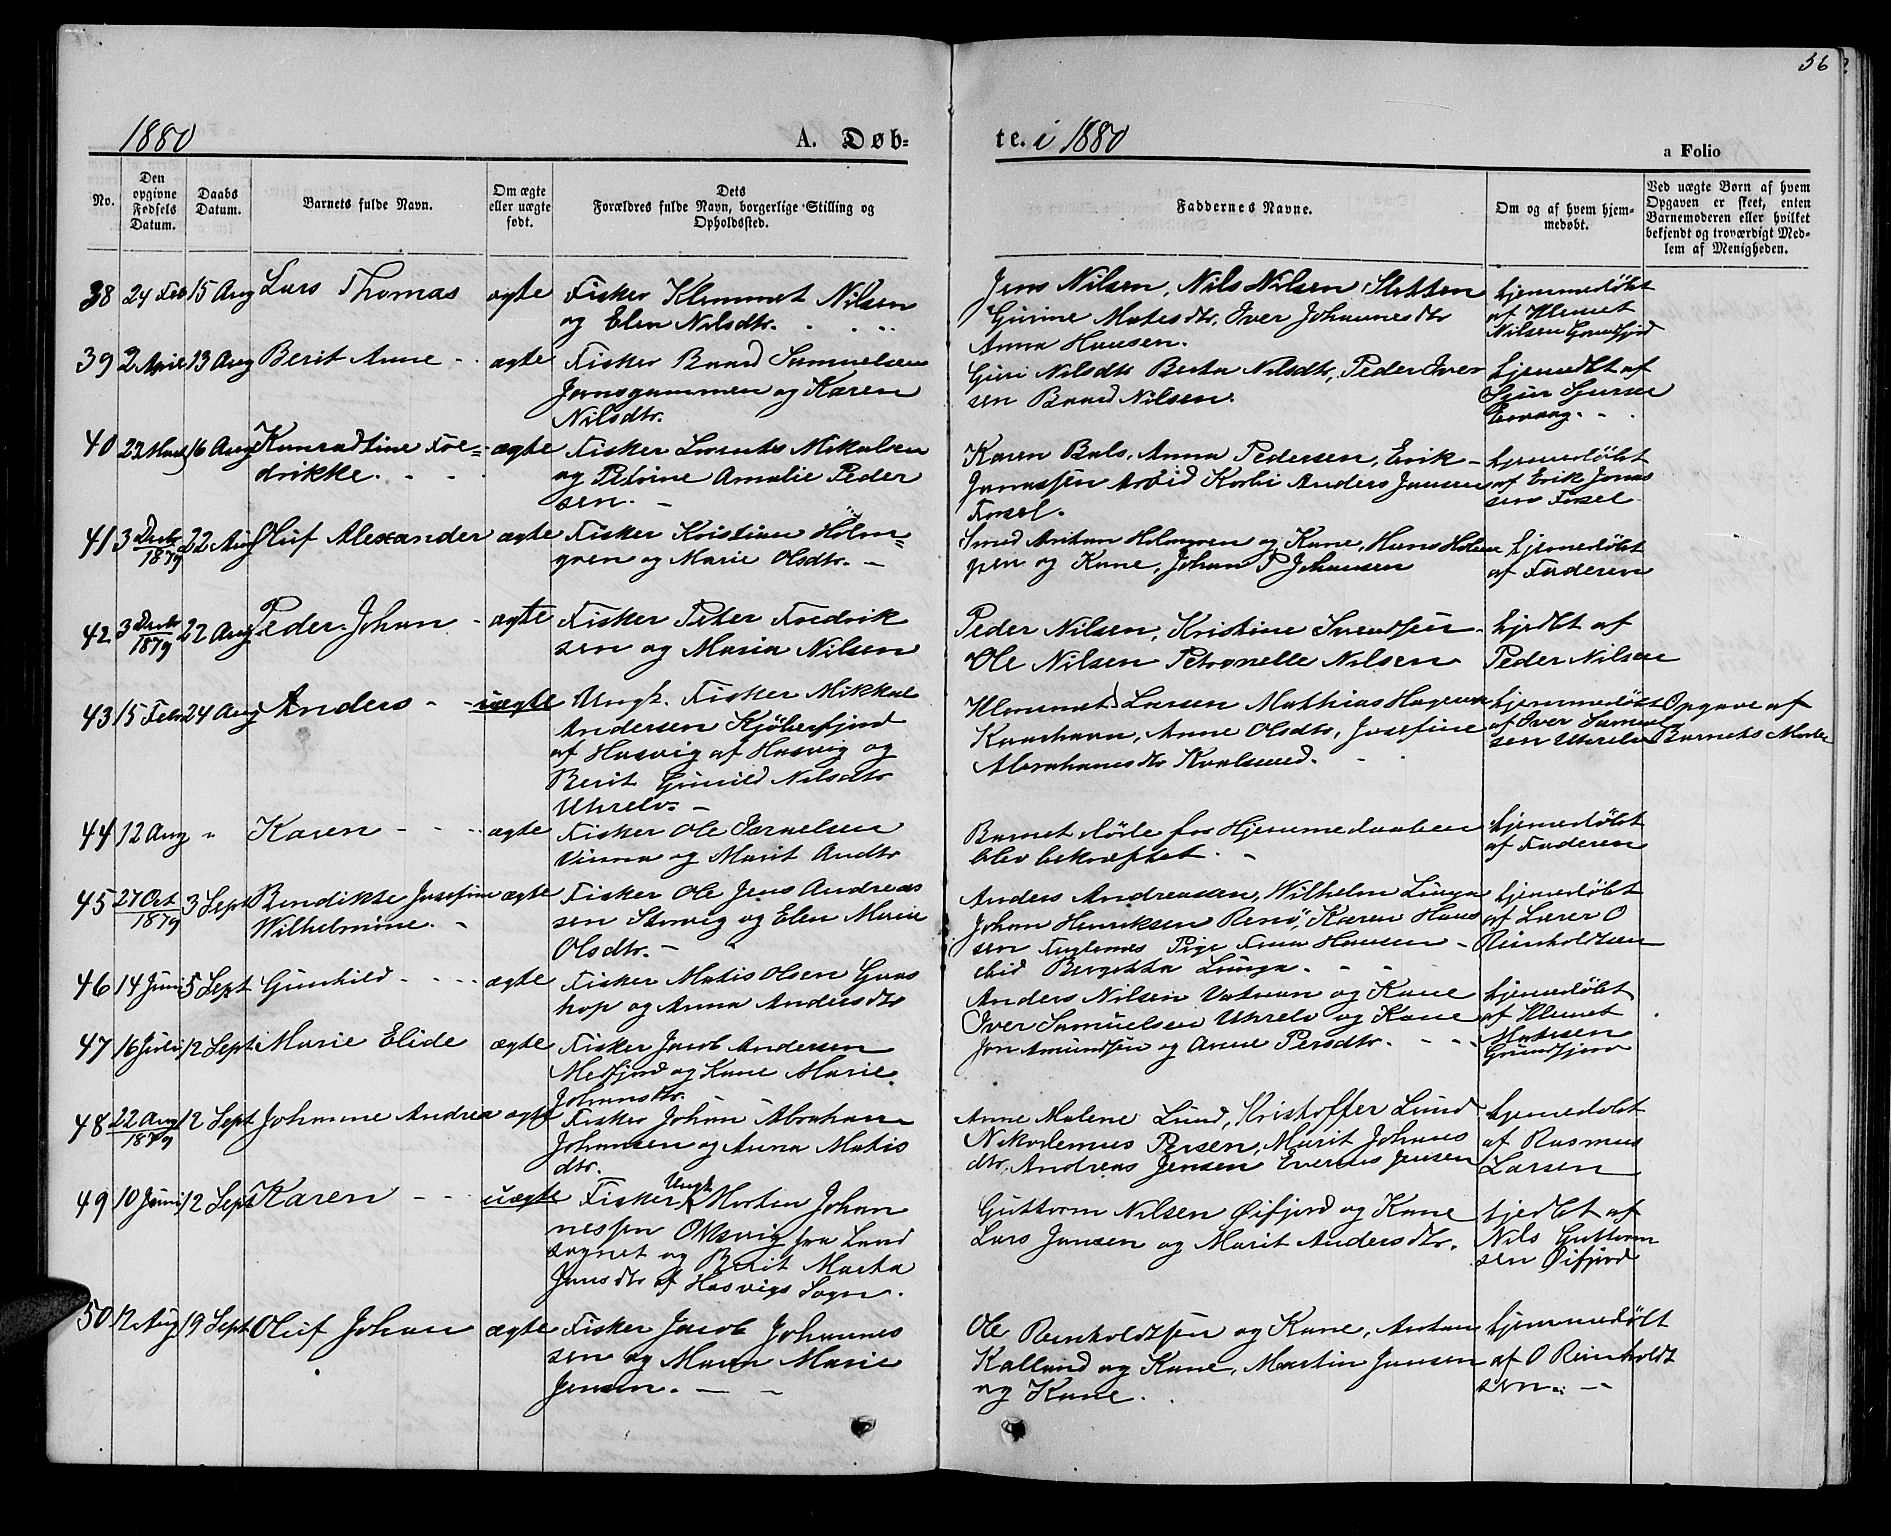 36
1880
A. Døb=
te. i 1880
a Folio
No.
Den opgivne Fødsels Datum.
Daabs Datum.
Barnets fulde Navn.
Om ægte eller uægte født.
Dets Forældres fulde Navn, borgerlige Stilling og Opholdssted.
Faddernes Navne.
Om og af hvem hjemmedøbt.
Ved uægte Børn af hvem Opgaven er skeet, enten Barnemoderen eller hvilket bekjendt og troværdigt Medlem af Menigheden.
38 24 Feb 15 Aug Lars Thomas ægte Fisker Klemmet Nilsen
og Elen Nilsdtr.
Jens Nilsen, Nils Nilsen, Sletten
Gurine Matisdtr, Iver Johannesdtr
Anna Hansen.
hjemmedøbt
af Klemet
Nilsen
39 2 April 13 Aug Berit Anne - ægte Fisker Baard Samuelsen
Jernsgammen og Karen
Nilsdtr.
Guri Nilsdtr Berta Nilsdtr, Peder Iver
sen Baard Nilsen.
hjemedbt af
40 23 Marts 16 Aug Konradtine Fre= ægte Fisker Lorents Mikalsen
drikke. - -
og Petrine Amalie Peder
sen. -
Karen Bals, Anna Pedersen, Erik
Jonassen Arvid Korbi Anders Jansen
Forsøl.
hjemedøbt
af Erik Jonas
sen Forsøl
41 3 Decbr 1879 22 Aug Oluf Alexander ægte Fisker Kristian Holm=
gren og Marie Olsdtr. -
Smed Anton Holmgren og Kone, Hans Holm
gren og Kone, Johan P Johansen
hjemedøbt
af Faderen
42 3 Decbr 1879 22 Aug Peder Johan - ægte Fisker Peter Fredrik
sen og Maria Nilsen
Peder Nilsen, Kristine Svendsen
Ole Nilsen Petronelle Nilsen
hjedbt af
Peder Nilsen
43 15 Febr 24 Aug Anders - - uægte Ungk. Fisker Mikkal
Andersen Kjøberfjord
af Hasvig af Hasvig og
Berit Gunild Nilsdtr
Uhrelv. -
Klemmet Larsen Mathias Hagens
Kaarhavn, Anne Olsdtr, Josefine
Abrahamsdtr Kvalsund.
hjemmedøbt
af Iver Samuel
sen Uhrelv
Opgave af
Barnets Moder
44 12 Aug " Karen - - - ægte Fisker Ole Israelsen
Vinna og Marit Andtr
Barnet døde før Hjemmedaaben
blev bekræftet. -
hjemedøbt
af Faderen
45 27 Oct 1879 3 Sept Bendikte Josefine ægte Fisker Ole Jens Andreas
Wilhelmine. -
sen Størvig og Elen Marie
Olsdtr. -
Anders Andreassen, Wilhelm Linga
Johan Henriksen Renø, Karen Hans
sen Fuglenes Pige Fina Hansen -
ibid Bergitta Linga.
hjemedøbt
af Lærer O
Reinholdtsen
46 14 Juni 5 Sept Gunhild - - - ægte Fisker Matis Olsen Graa
hop og Anna Andersdtr
Anders Nilsen Vatnan og Kone
Iver Samuelsen Uhrelv og Kone
Jon Amundsen og Anne Persdtr. - - -
hjemedøbt
af Klemet
Matisen
Grundfjord
47 16 Juli 12 Sept Marie Elide ægte Fisker Jacob Andersen
Mefjord og Kone Marie
Johansdtr.
48 22 Aug 1879 12 Sept Johanne Andrea ægte Fisker Johan Abraham
Johansen og Anna Matis
dtr.
Anne Malene Lund, Kristoffer Lund
Nikodemus Persen, Marit Johans
dtr, Andreas Jensen Evernes Jensen
hjemedøbt
af Rasmus
Larsen
49 10 Juni 12 Sept Karen - - - uægte Fisker Ungk Morten Johan
nessen Oksvig fra Land
sognet og Berit Marta
Jansdtr af Hasvigs Sogn.
Guttorm Nilsen Øifjord og Kone
Lars Jansen og Marit Andersdtr.
hjedbt af
Nils Guttorm
sen Øifjord
50 12 Aug 19 Sept Oluf Johan ægte Fisker Jacob Johannes
sen og Maren Marie
Jensen. - -
Ole Reinholdtsen og Kone, Anton
Kalland og Kone, Martin Jansen
og Kone.
hjemmedøbt
af O Reinholdt
sen. -